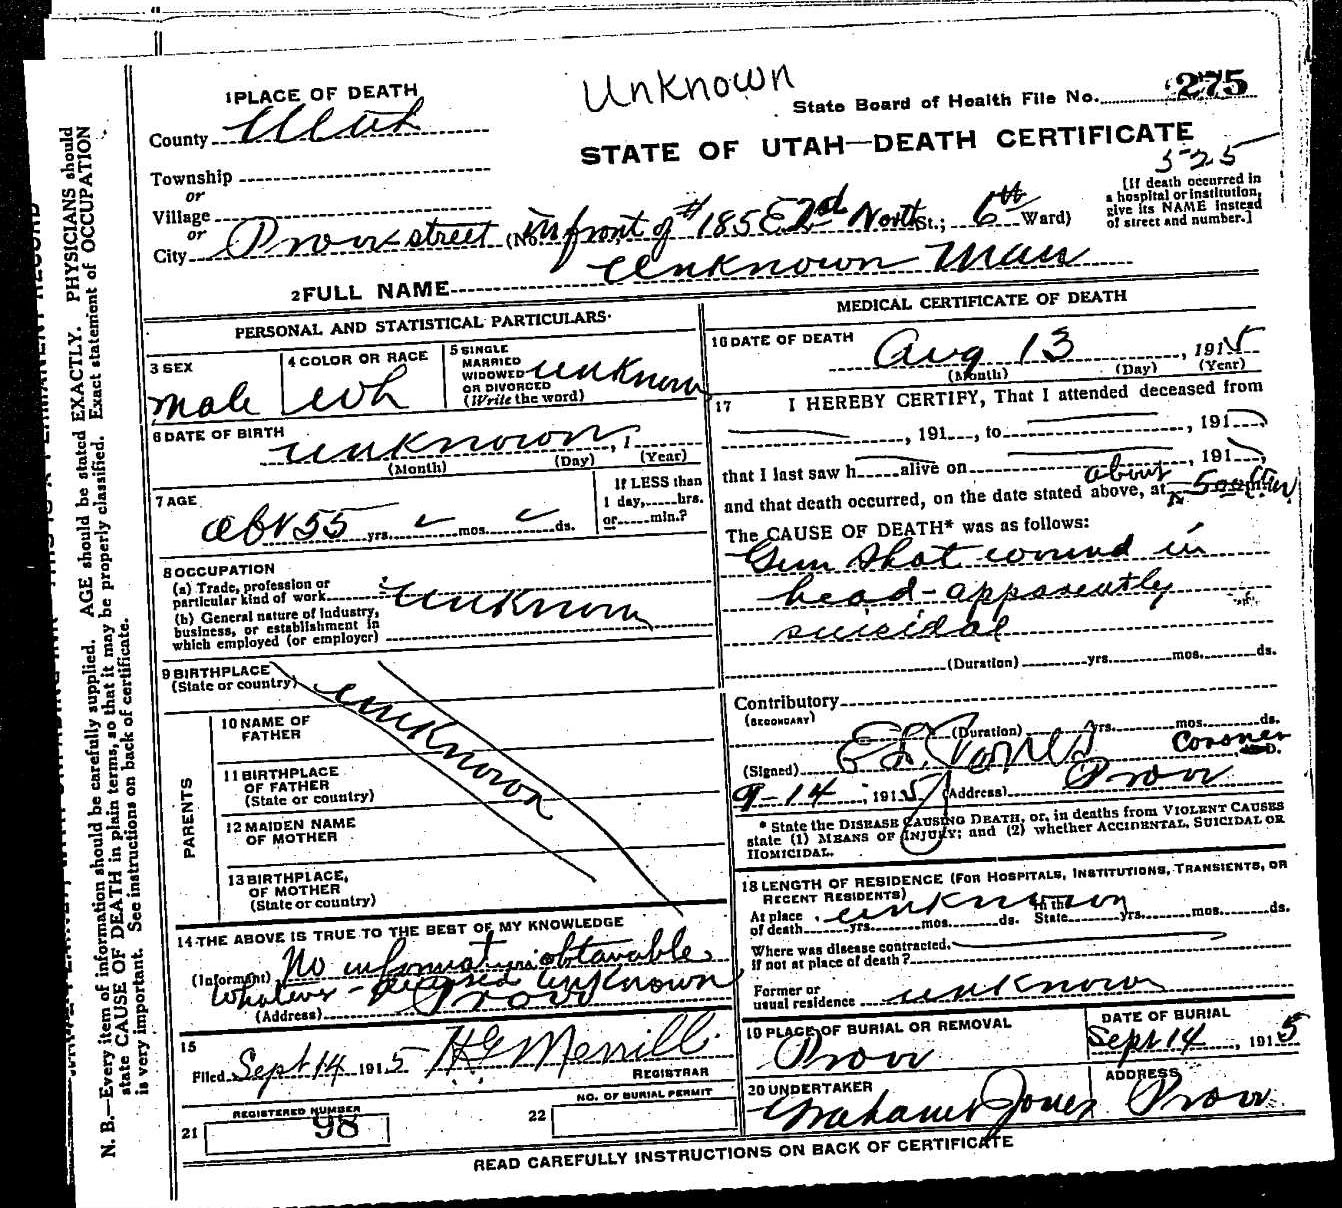 Unknown
1 PLACE OF DEATH
State Board of Health File No. 275
County Utah
STATE OF UTAH—DEATH CERTIFICATE
525
Township
or
Village
or
City Provo street (No. in front of #185 E 2nd North St.; 6th Ward)
[If death occurred in
a hospital or institution,
give its NAME instead
of street and number.]
2 FULL NAME Unknown Man
PERSONAL AND STATISTICAL PARTICULARS
3 SEX
male
4 COLOR OR RACE
wh
5 SINGLE
MARRIED
WIDOWED
OR DIVORCED
(Write the word)
unknown
6 DATE OF BIRTH
unknown, 1
(Month) (Day) (Year)
7 AGE
abt 55 yrs. mos. ds.
If LESS than
1 day, hrs.
or min.?
8 OCCUPATION
(a) Trade, profession or
particular kind of work
unknown
(b) General nature of Industry,
business, or establishment in
which employed (or employer)
9 BIRTHPLACE
(State or country)
unknown
PARENTS
10 NAME OF
FATHER
11 BIRTHPLACE
OF FATHER
(State or country)
12 MAIDEN NAME
OF MOTHER
13 BIRTHPLACE
OF MOTHER
(State or country)
14 THE ABOVE IS TRUE TO THE BEST OF MY KNOWLEDGE
(Informant) No information obtainable
whatever - deceased unknown
(Address) Provo
15
Filed Sept 14 1915 H G Merrill
REGISTRAR
REGISTERED NUMBER
21 98
NO. OF BURIAL PERMIT
22
MEDICAL CERTIFICATE OF DEATH
16 DATE OF DEATH
Aug 13, 1915
(Month) (Day) (Year)
17 I HEREBY CERTIFY, That I attended deceased from
, 191, to , 191
that I last saw h alive on , 191,
about
and that death occurred, on the date stated above, at
The CAUSE OF DEATH* was as follows:
Gun shot wound in
head - apparently
suicidal
(Duration) yrs. mos. ds.
Contributory
(SECONDARY)
(Duration) yrs. mos. ds.
(Signed) Jones Coroner
9-14, 1915 (Address) Provo
* State the DISEASE CAUSING DEATH, or, in deaths from VIOLENT CAUSES
state (1) MEANS OF INJURY; and (2) whether ACCIDENTAL, SUICIDAL OR
HOMICIDAL.
18 LENGTH OF RESIDENCE (FOR HOSPITALS, INSTITUTIONS, TRANSIENTS, OR
RECENT RESIDENTS)
unknown
At place In the
of death yrs. mos. ds. State yrs. mos. ds.
Where was disease contracted,
if not at place of death?
Former or
usual residence unknown
19 PLACE OF BURIAL OR REMOVAL
Provo
DATE OF BURIAL
Sept 14, 1915
20 UNDERTAKER
Jones
ADDRESS
Provo
READ CAREFULLY INSTRUCTIONS ON BACK OF CERTIFICATE
N. B.—Every item of information should be carefully supplied. AGE should be stated EXACTLY. PHYSICIANS should
state CAUSE OF DEATH in plain terms, so that it may be properly classified. Exact statement of OCCUPATION
is very important. See instructions on back of certificate.